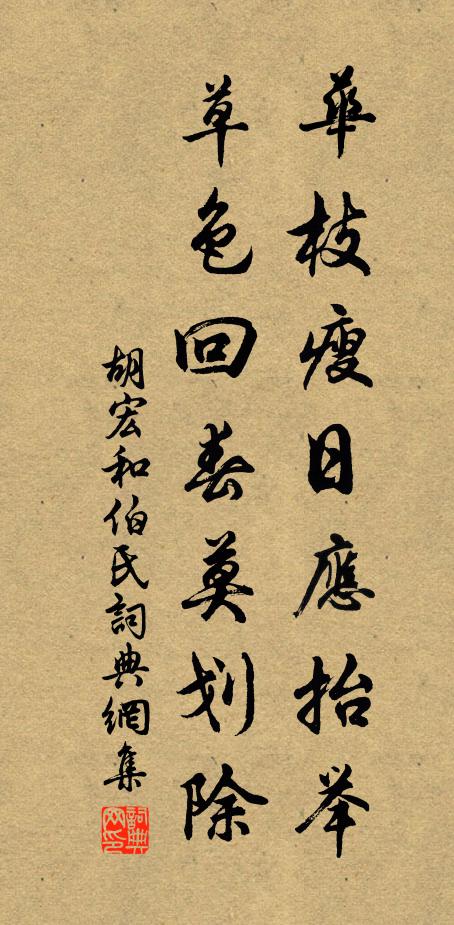 華枝瘦日應抬举
草色回春莫划除
胡宏和伯氏詞典網集
詞典網印